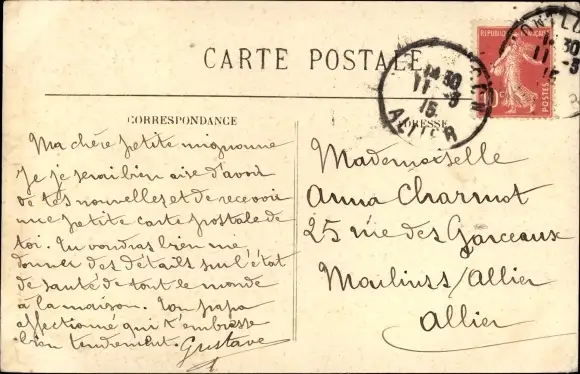 CARTE POSTALE
CORRESPONDANCE
ADRESSE
REPUBLIQUE FRANÇAISE
10c
POSTES
30
11 -3
15
ALLIER
MONTLU
30
11 -3
15
Ma chère petite mignonne
Je serai bien aise d'avoir
de tes nouvelles et de recevoir
une petite carte postale de
toi. Tu voudras bien me
donner des détails sur l'état
de santé de tout le monde
à la maison. Ton papa
affectionné qui t'embrasse
bien tendrement. Gustave
Mademoiselle
Anna Charmot
25 rue des Garceaux
Moulins s/Allier
Allier